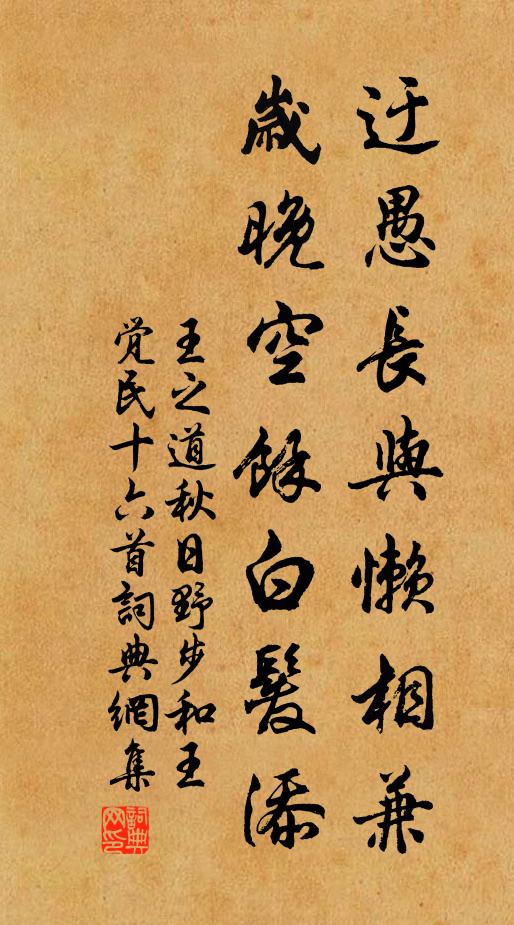 迂愚長與懶相兼
歲晚空餘白髮添
王之道秋日野步和王
覺民十六首詞典網集
詞典网印